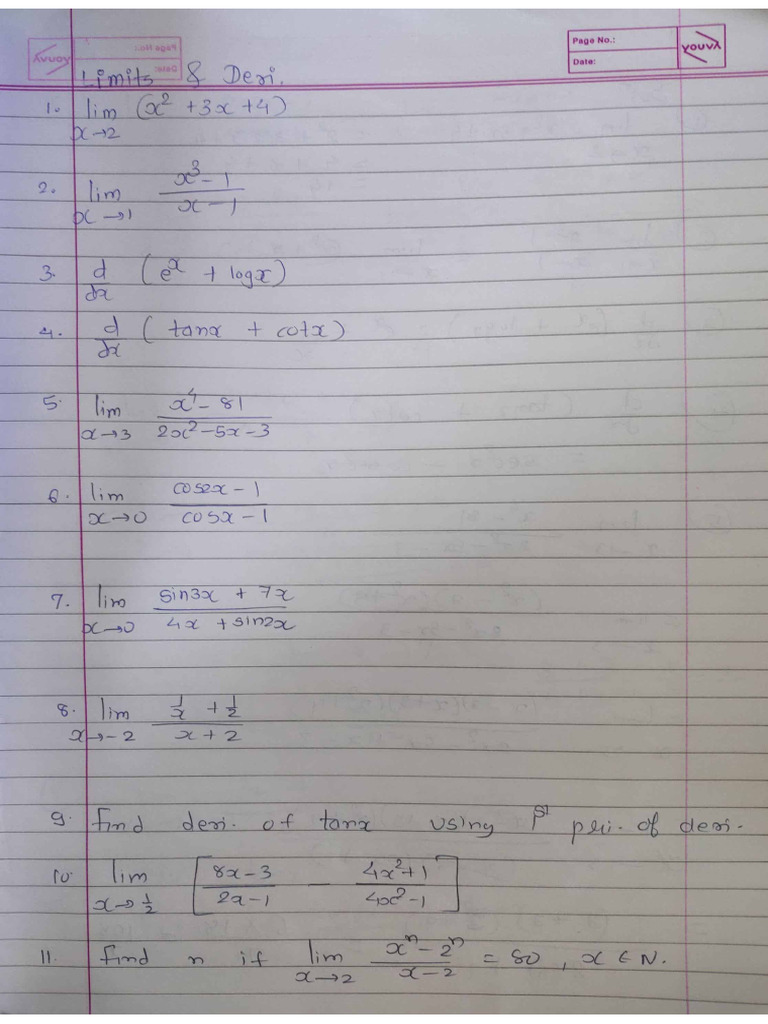 Page No.:
Date:
YOUVA
Limits & Deri.
1. lim (x² + 3x + 4)
x→2
2. lim x³ - 1 / x - 1
x→1
3. d/dx (eˣ + logx)
4. d/dx ( tanx + cotx )
5. lim x⁴ - 81 / 2x² - 5x - 3
x→3
6. lim cos2x - 1 / cosx - 1
x→0
7. lim sin3x + 7x / 4x + sin2x
x→0
8. lim 1/x + 1/2 / x + 2
x→-2
9. Find deri. of tanx using 1st pri. of deri.
10. lim [ 8x - 3 / 2x - 1 - 4x² + 1 / 4x² - 1 ]
x→1/2
11. Find n if lim xⁿ - 2ⁿ / x - 2 = 80 , x ∈ N.
x→2